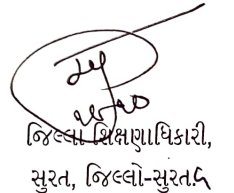 જિલ્લા શિક્ષણાધિકારી,
સુરત, જિલ્લો-સુરત.